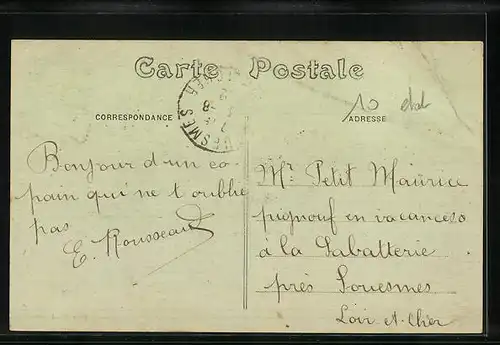 Carte Postale
CORRESPONDANCE
ADRESSE
10 état
Bonjour d'un co-
pain qui ne t'oublie
pas
E. Rousseau
Mr Petit Maurice
pignouf en vacances
à la Sabatterie
près Souesmes
Loir-et-Cher
ESMES